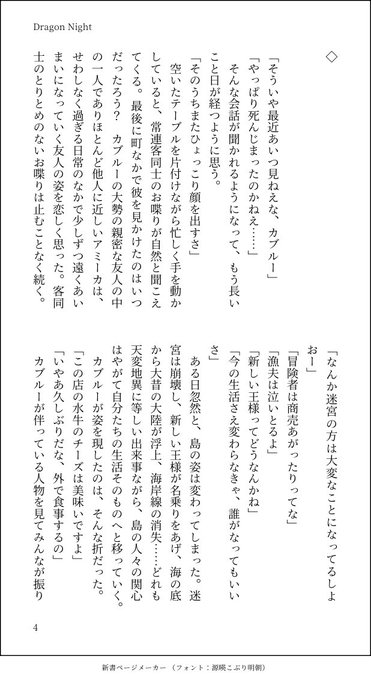 Dragon Night
◇
「そういや最近あいつ見ねえな、カブルー」
「やっぱり死んじまったのかねえ……」
そんな会話が聞かれるようになって、もう長い
こと日が経つように思う。
「そのうちまたひょっこり顔を出すさ」
空いたテーブルを片付けながら忙しく手を動か
していると、常連客同士のお喋りが自然と聞こえ
てくる。最後に町なかで彼を見かけたのはいつ
だったろう？　カブルーの大勢の親密な友人の中
の一人でありほとんど他人に近しいアミーカは、
せわしなく過ぎる日常のなかで少しずつ遠くあい
まいになっていく友人の姿を恋しく思った。客同
士のとりとめのないお喋りは止むことなく続く。
「なんか迷宮の方は大変なことになってるしよ
おー」
「冒険者は商売あがったりってな」
「漁夫は泣いとるよ」
「新しい王様ってどうなんかね」
「今の生活さえ変わらなきゃ、誰がなってもいい
さ」
ある日忽然と、島の姿は変わってしまった。迷
宮は崩壊し、新しい王様が名乗りをあげ、海の底
から大昔の大陸が浮上、海岸線の消失……どれも
天変地異に等しい出来事ながら、島の人々の関心
はやがて自分たちの生活そのものへと移っていく。
カブルーが姿を現したのは、そんな折だった。
「この店の水牛のチーズは美味いですよ」
「いやあ久しぶりだな、外で食事するの」
カブルーが伴っている人物を見てみんなが振り
4
新書ページメーカー（フォント：源暎こぶり明朝）